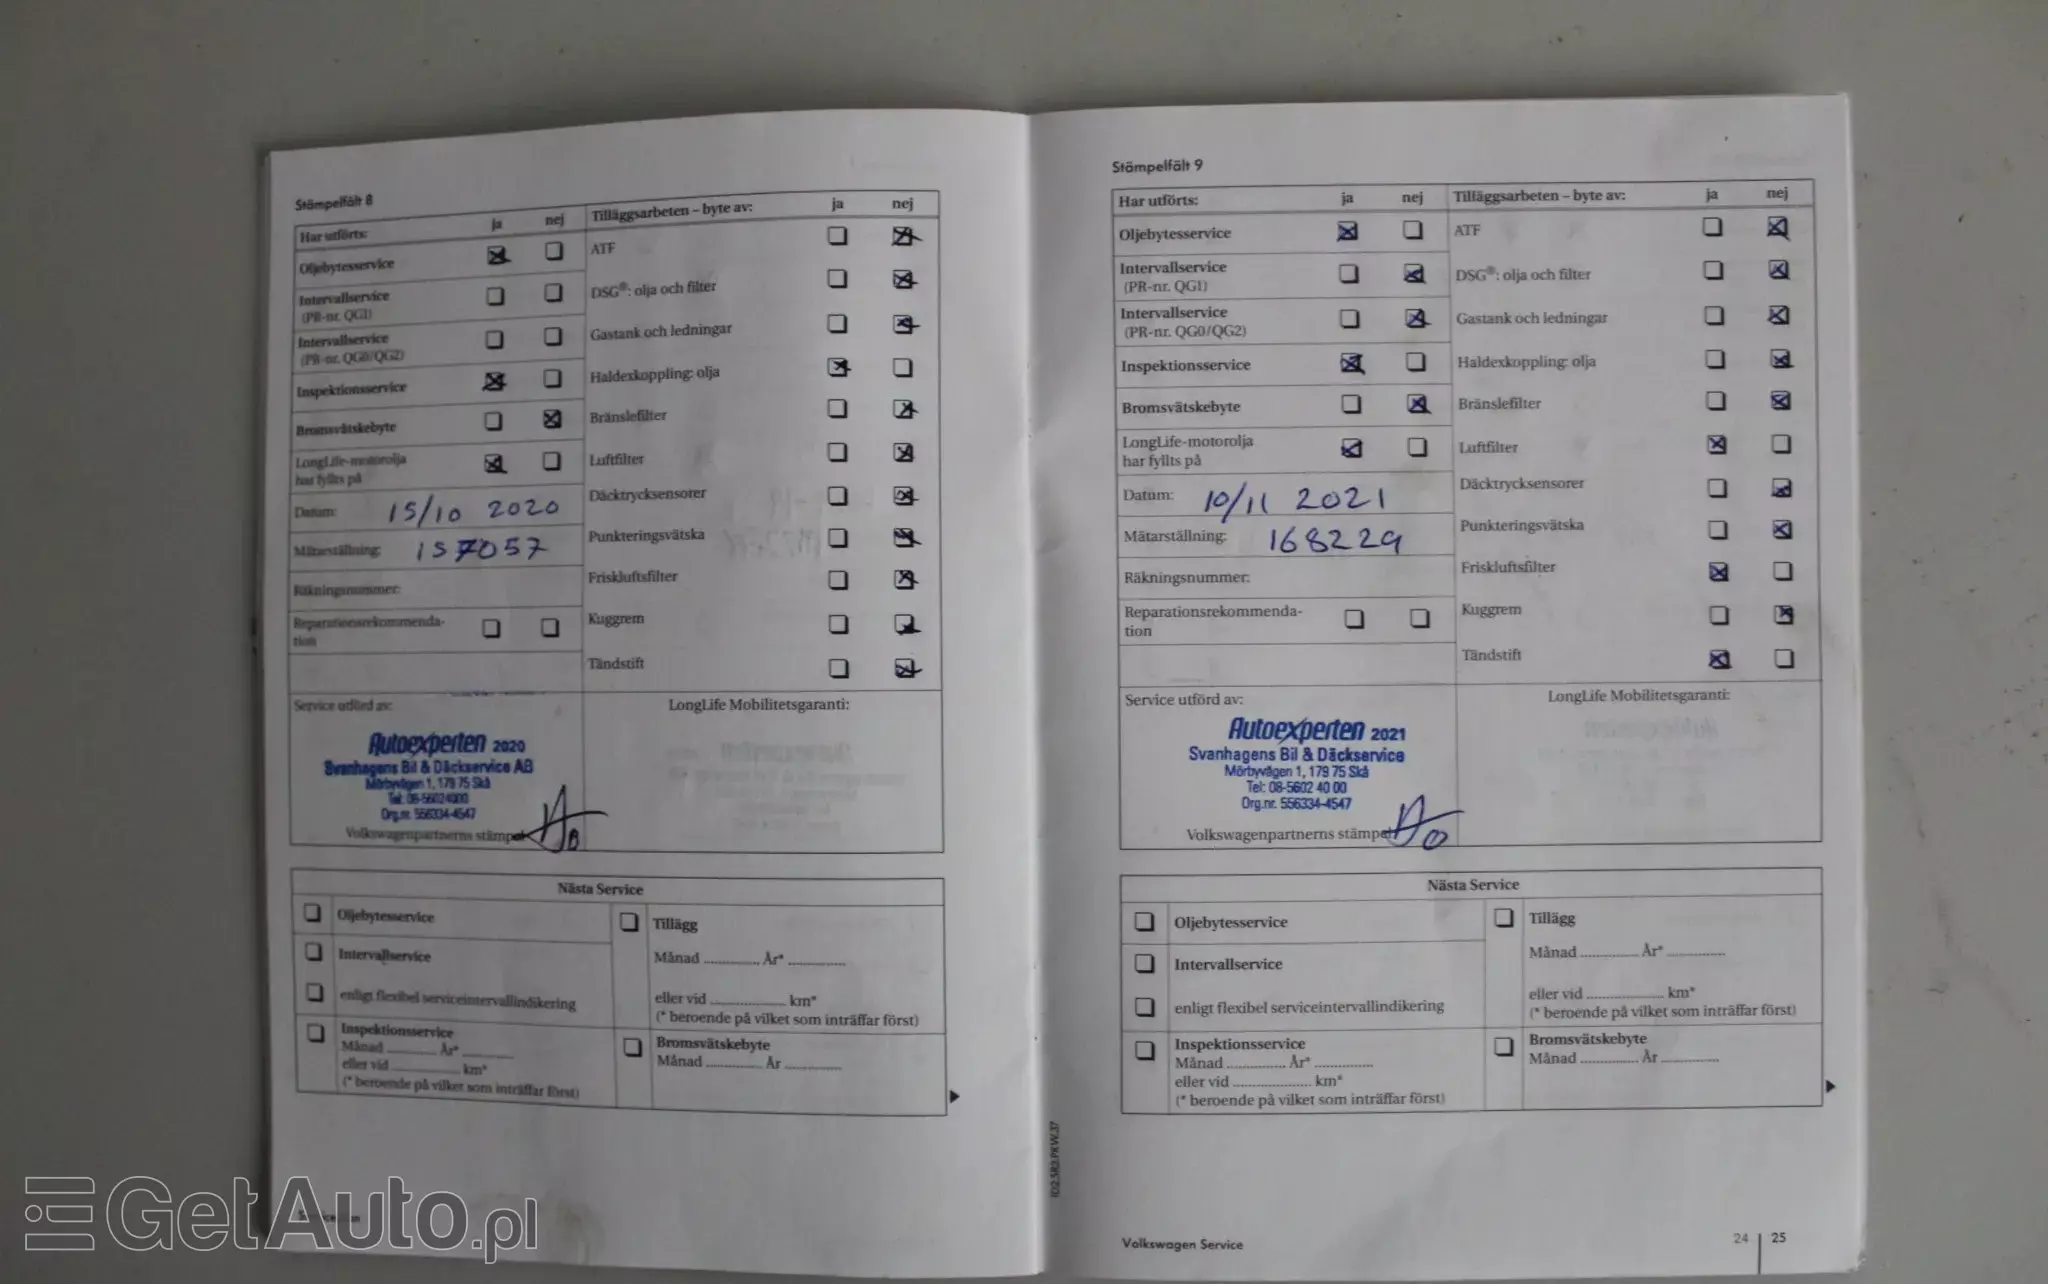 Stämpelfält 8
Har utförts: ja nej
Oljebytesservice
Intervallservice
(PR-nr. QG1)
Intervallservice
(PR-nr. QG0/QG2)
Inspektionsservice
Bromsvätskebyte
LongLife-motorolja
har fyllts på
Datum: 15/10 2020
Mätarställning: 157057
Räkningsnummer:
Reparationsrekommenda-
tion
Tilläggsarbeten – byte av: ja nej
ATF
DSG®: olja och filter
Gastank och ledningar
Haldexkoppling: olja
Bränslefilter
Luftfilter
Däcktrycksensorer
Punkteringsvätska
Friskluftsfilter
Kuggrem
Tändstift
Service utförd av:
Autoexperten 2020
Svanhagens Bil & Däckservice AB
Mörbyvägen 1, 179 75 Skå
Tel: 08-56024000
Org.nr. 556334-4547
Volkswagenpartnerns stämpel
LongLife Mobilitetsgaranti:
Nästa Service
Oljebytesservice
Intervallservice
enligt flexibel serviceintervallindikering
Inspektionsservice
Månad ............ År* ............
eller vid ................ km*
(* beroende på vilket som inträffar först)
Tillägg
Månad ............. År* .............
eller vid ................. km*
(* beroende på vilket som inträffar först)
Bromsvätskebyte
Månad ............. År .............
Stämpelfält 9
Har utförts: ja nej
Oljebytesservice
Intervallservice
(PR-nr. QG1)
Intervallservice
(PR-nr. QG0/QG2)
Inspektionsservice
Bromsvätskebyte
LongLife-motorolja
har fyllts på
Datum: 10/11 2021
Mätarställning: 168229
Räkningsnummer:
Reparationsrekommenda-
tion
Tilläggsarbeten – byte av: ja nej
ATF
DSG®: olja och filter
Gastank och ledningar
Haldexkoppling: olja
Bränslefilter
Luftfilter
Däcktrycksensorer
Punkteringsvätska
Friskluftsfilter
Kuggrem
Tändstift
Service utförd av:
Autoexperten 2021
Svanhagens Bil & Däckservice
Mörbyvägen 1, 179 75 Skå
Tel: 08-5602 40 00
Org.nr. 556334-4547
Volkswagenpartnerns stämpel
LongLife Mobilitetsgaranti:
Nästa Service
Oljebytesservice
Intervallservice
enligt flexibel serviceintervallindikering
Inspektionsservice
Månad ............. År* .............
eller vid ................. km*
(* beroende på vilket som inträffar först)
Tillägg
Månad ............. År* .............
eller vid ................. km*
(* beroende på vilket som inträffar först)
Bromsvätskebyte
Månad ............. År .............
Volkswagen Service
24 | 25
GetAuto.pl